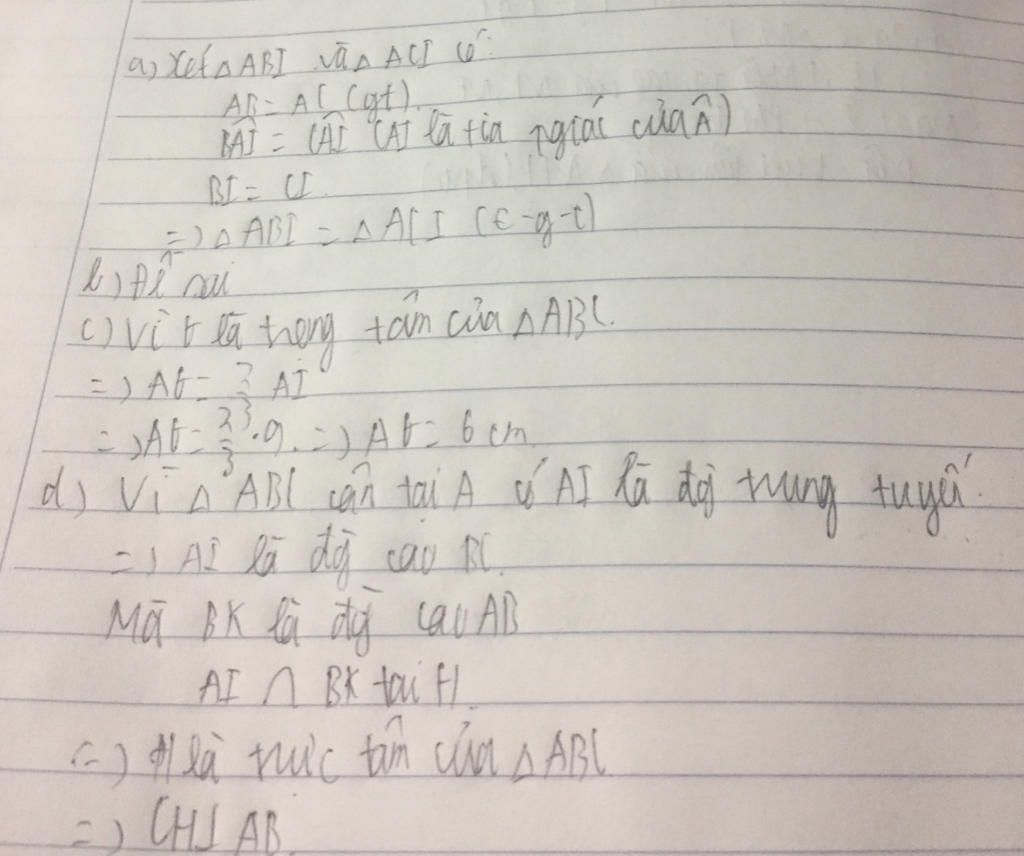 a) Xét △ ABI và △ ACI có:
AB = AC (gt).
BÂI = CÂI (AI là tia pgiác của Â)
BI = CI
=> △ ABI = △ ACI (c-g-c)
b) Đề sai
c) Vì G là trọng tâm của △ ABC.
=> AG = 2/3 AI
=> AG = 2/3 . 9 => AG = 6 cm
d) Vì △ ABC cân tại A có AI là đg trung tuyến.
=> AI là đg cao BC.
Mà BK là đg cao AB
AI ∩ BK tại H.
=> H là trực tâm của △ ABC
=> CH ⊥ AB.